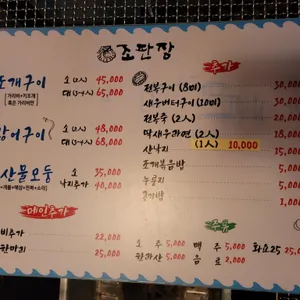 조판장
조개구이 소(2人) 45,000
[가리비+키조개 대(3-4人) 65,000
혹은 가리비만]
장어구이 소(2人) 48,000
대(3-4人) 68,000
해산물모둠 소 35,000
낙지추가 40,000
메인추가
22,000
25,000
추가
전복구이 (8미) 30,000
새우버터구이 (10미) 30,000
전복죽 (2人) 20,000
딱새우라면 (2人) 18,000
(1人) 10,000
산낙지 15,000
조개볶음밥 5,000
누룽지
공기밥
소주 5,000 맥주 5,000 화요25
한라산 5,000 음료 2,000